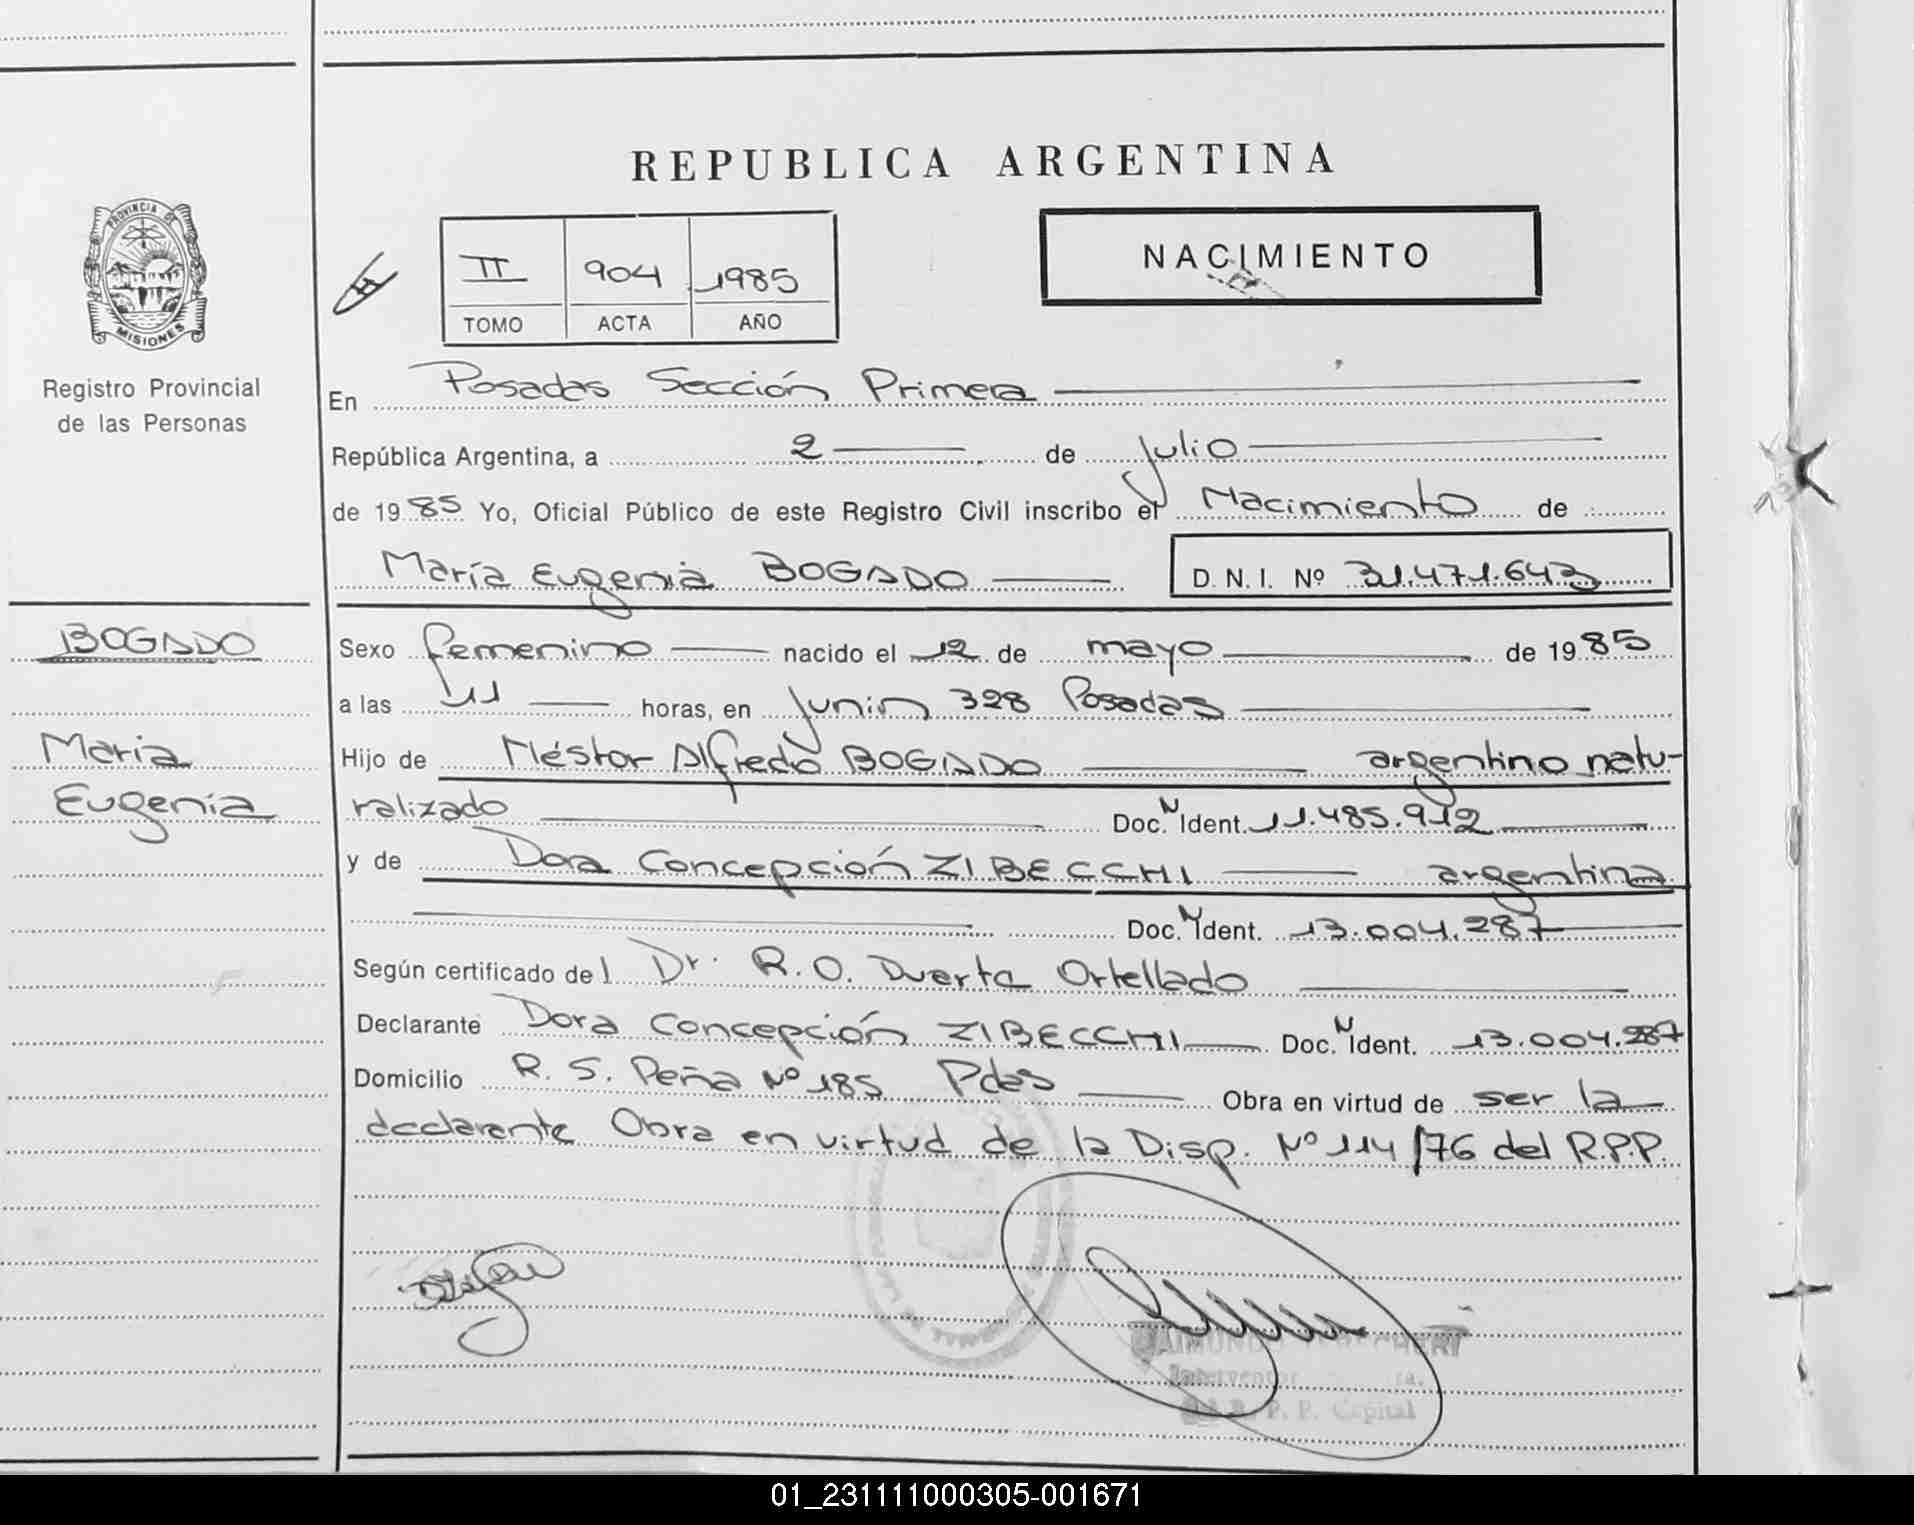 REPUBLICA ARGENTINA
PROVINCIA DE MISIONES
Registro Provincial
de las Personas
II 904 1985
TOMO ACTA AÑO
NACIMIENTO
En Posadas Sección Primera
República Argentina, a 2 de Julio
de 1985 Yo, Oficial Público de este Registro Civil inscribo el Nacimiento de
María Eugenia BOGADO D. N. I. Nº 31.471.643
BOGADO
Maria
Eugenia
Sexo femenino nacido el 12 de mayo de 1985
a las 11 horas, en Junin 328 Posadas
Hijo de Néstor Alfredo BOGADO argentino natu-
ralizado Doc. N Ident. 11.485.912
y de Dora Concepción ZIBECCHI argentina
Doc. N Ident. 13.004.287
Según certificado del Dr. R. O. Duerta Ortellado
Declarante Dora Concepción ZIBECCHI Doc. N Ident. 13.004.287
Domicilio R. S. Peña Nº 185 Pdas Obra en virtud de ser la
declarante Obra en virtud de la Disp. Nº 114/76 del R.P.P.
R. P. P. Capital
01_231111000305-001671